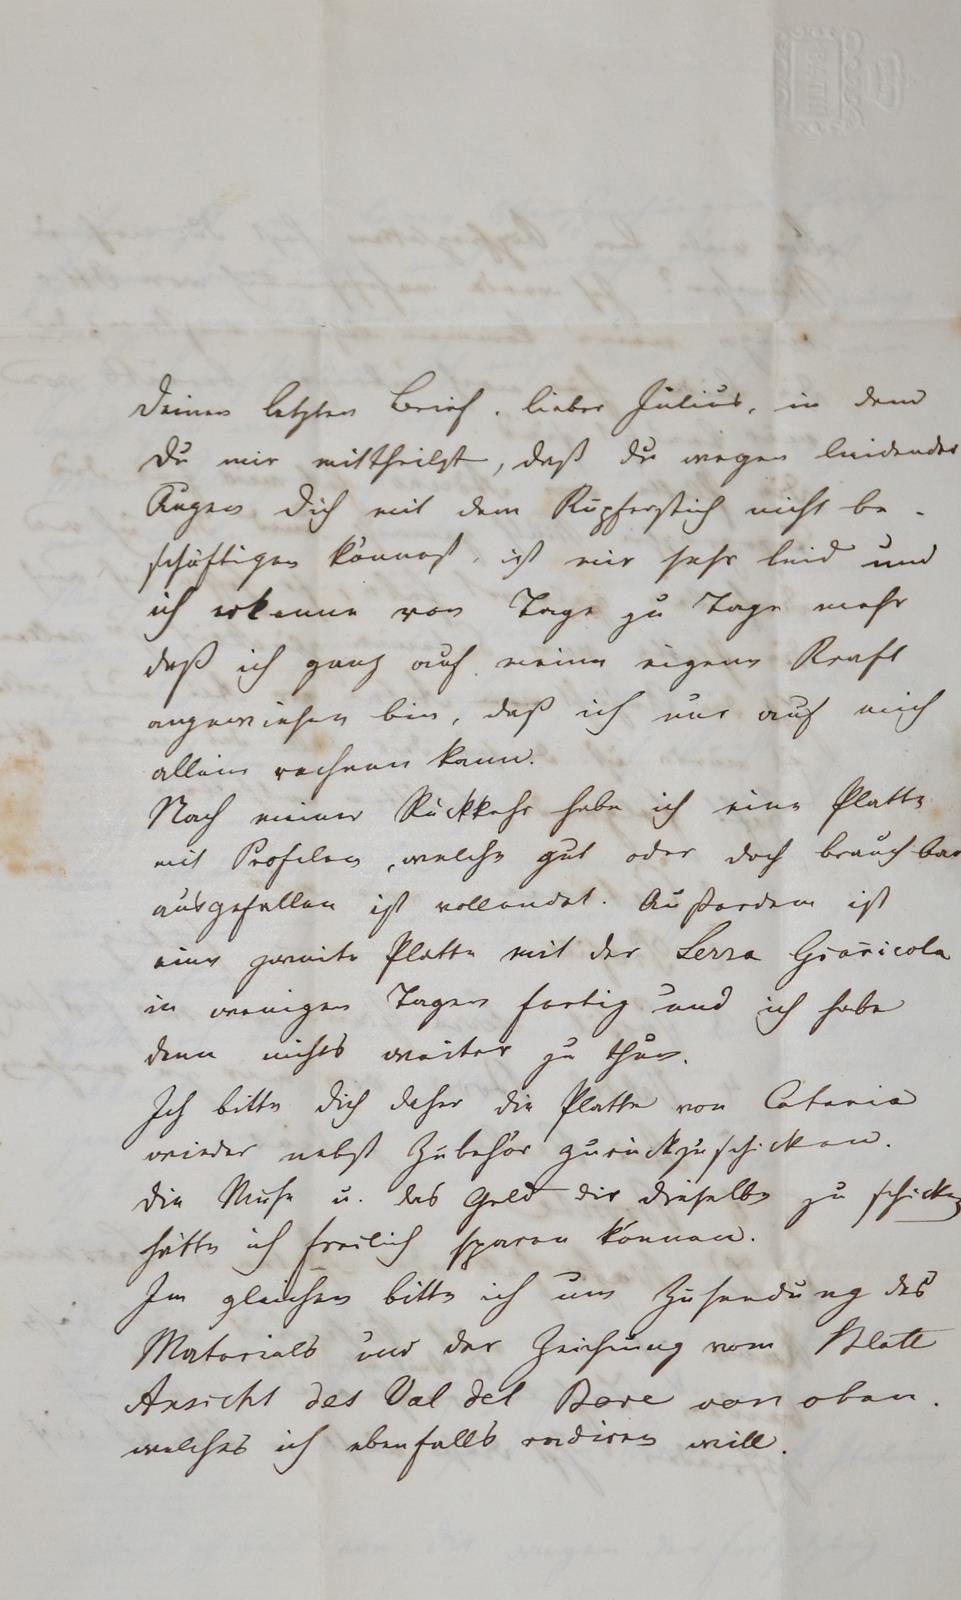 Deinen letzten Brief, lieber Julius, in dem
Du mir mittheilst, daß du wegen leidender
Augen Dich mit dem Kupferstich nicht be-
schäftigen könnest, ist mir sehr leid und
ich erkenne von Tage zu Tage mehr
daß ich ganz auf meine eigene Kraft
angewiesen bin, daß ich nur auf mich
allein rechnen kann.
Nach meiner Rückkehr habe ich eine Platte
mit Profilen, welche gut oder doch brauchbar
ausgefallen ist vollendet. Außerdem ist
eine zweite Platte mit der Serra Giannicola
in wenigen Tagen fertig und ich habe
dann nichts weiter zu thun.
Ich bitte dich daher die Platte von Catania
wieder nebst Zubehör zurückzuschicken.
Die Mühe u. das Geld dir dieselbe zu schicken
hätte ich freilich sparen können.
Im gleichen bitte ich um Zusendung des
Materials und der Zeichnung vom Blatt
Ansicht des Val del Bove von oben.
welches ich ebenfalls radiren will.